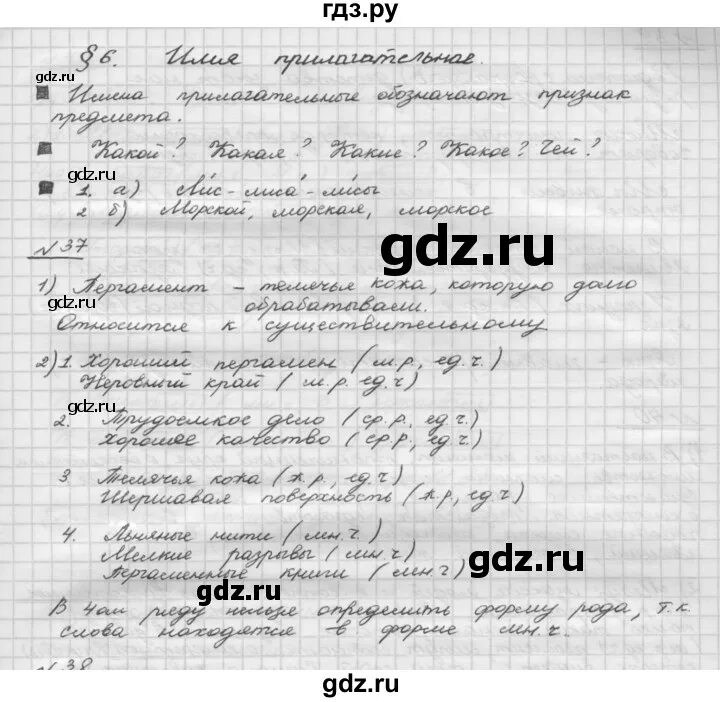 гдз.ру
§6. Имя прилагательное.
gdz.ru
Имена прилагательные обозначают признак
предмета.
Какой? Какая? Какие? Какое? Чей?
gdz.ru
1. а) Лис - лиса - лисы
2 б) Морской, морская, морское
gdz.ru
№37
1) Пергамент - телячья кожа, которую долго
обрабатываем.
Относится к существительному
2) 1. Хороший пергамен (м.р., ед.ч.)
Неровный край (м.р, ед.ч)
gdz.ru
2. Трудоемкое дело (ср.р., ед.ч.)
Хорошее качество (ср.р, ед.ч.)
3. Телячья кожа (ж.р., ед.ч)
Шершавая поверхность (ж.р, ед.ч)
gdz.ru
4. Льняные нити (мн.ч.)
Мелкие разрывы (мн.ч)
Пергаменные книги (мн.ч)
gdz.ru
В 4ом ряду нельзя определить форму рода, т.к.
слова находятся в форме мн.ч.
№38
gdz.ru
gdz.ru